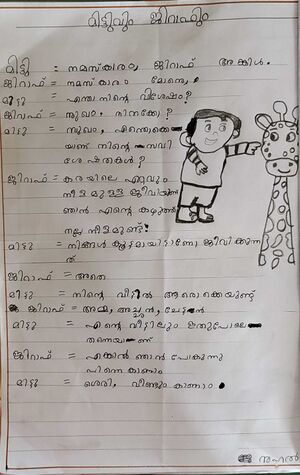 മിട്ടുവും ജിറാഫും
മിട്ടു = നമസ്കാരം, ജിറാഫ് അങ്കിൾ.
ജിറാഫ് = നമസ്കാരം മോനെ,
മിട്ടു = എന്താ നിന്റെ വിശേഷം?
ജിറാഫ് = സുഖം, നിനക്കോ?
മിട്ടു = സുഖം, എന്തൊക്കെ
യണ് നിന്റെ സവി
ശേഷതകൾ?
ജിറാഫ് = കരയിലെ ഏറ്റവും
നീളമുള്ള ജീവിയാണ്
ഞാൻ എന്റെ കഴുത്ത്
നല്ല നീളമുണ്ട്.
മിട്ടു = നിങ്ങൾ കൂട്ടമായിട്ടാണോ ജീവിക്കുന്ന
ത്
ജിറാഫ് = അതെ
മിട്ടു = നിന്റെ വീട്ടിൽ ആരൊക്കെയുണ്ട്
ജിറാഫ് = അമ്മ, അച്ഛൻ, ചേട്ടൻ
മിട്ടു = എന്റെ വീട്ടിലും ഇതുപോലെ
തന്നെയാണ്
ജിറാഫ് = എങ്കിൽ ഞാൻ പോകുന്നു
പിന്നെ കാണാം
മിട്ടു = ശെരി, വീണ്ടും കാണാം.